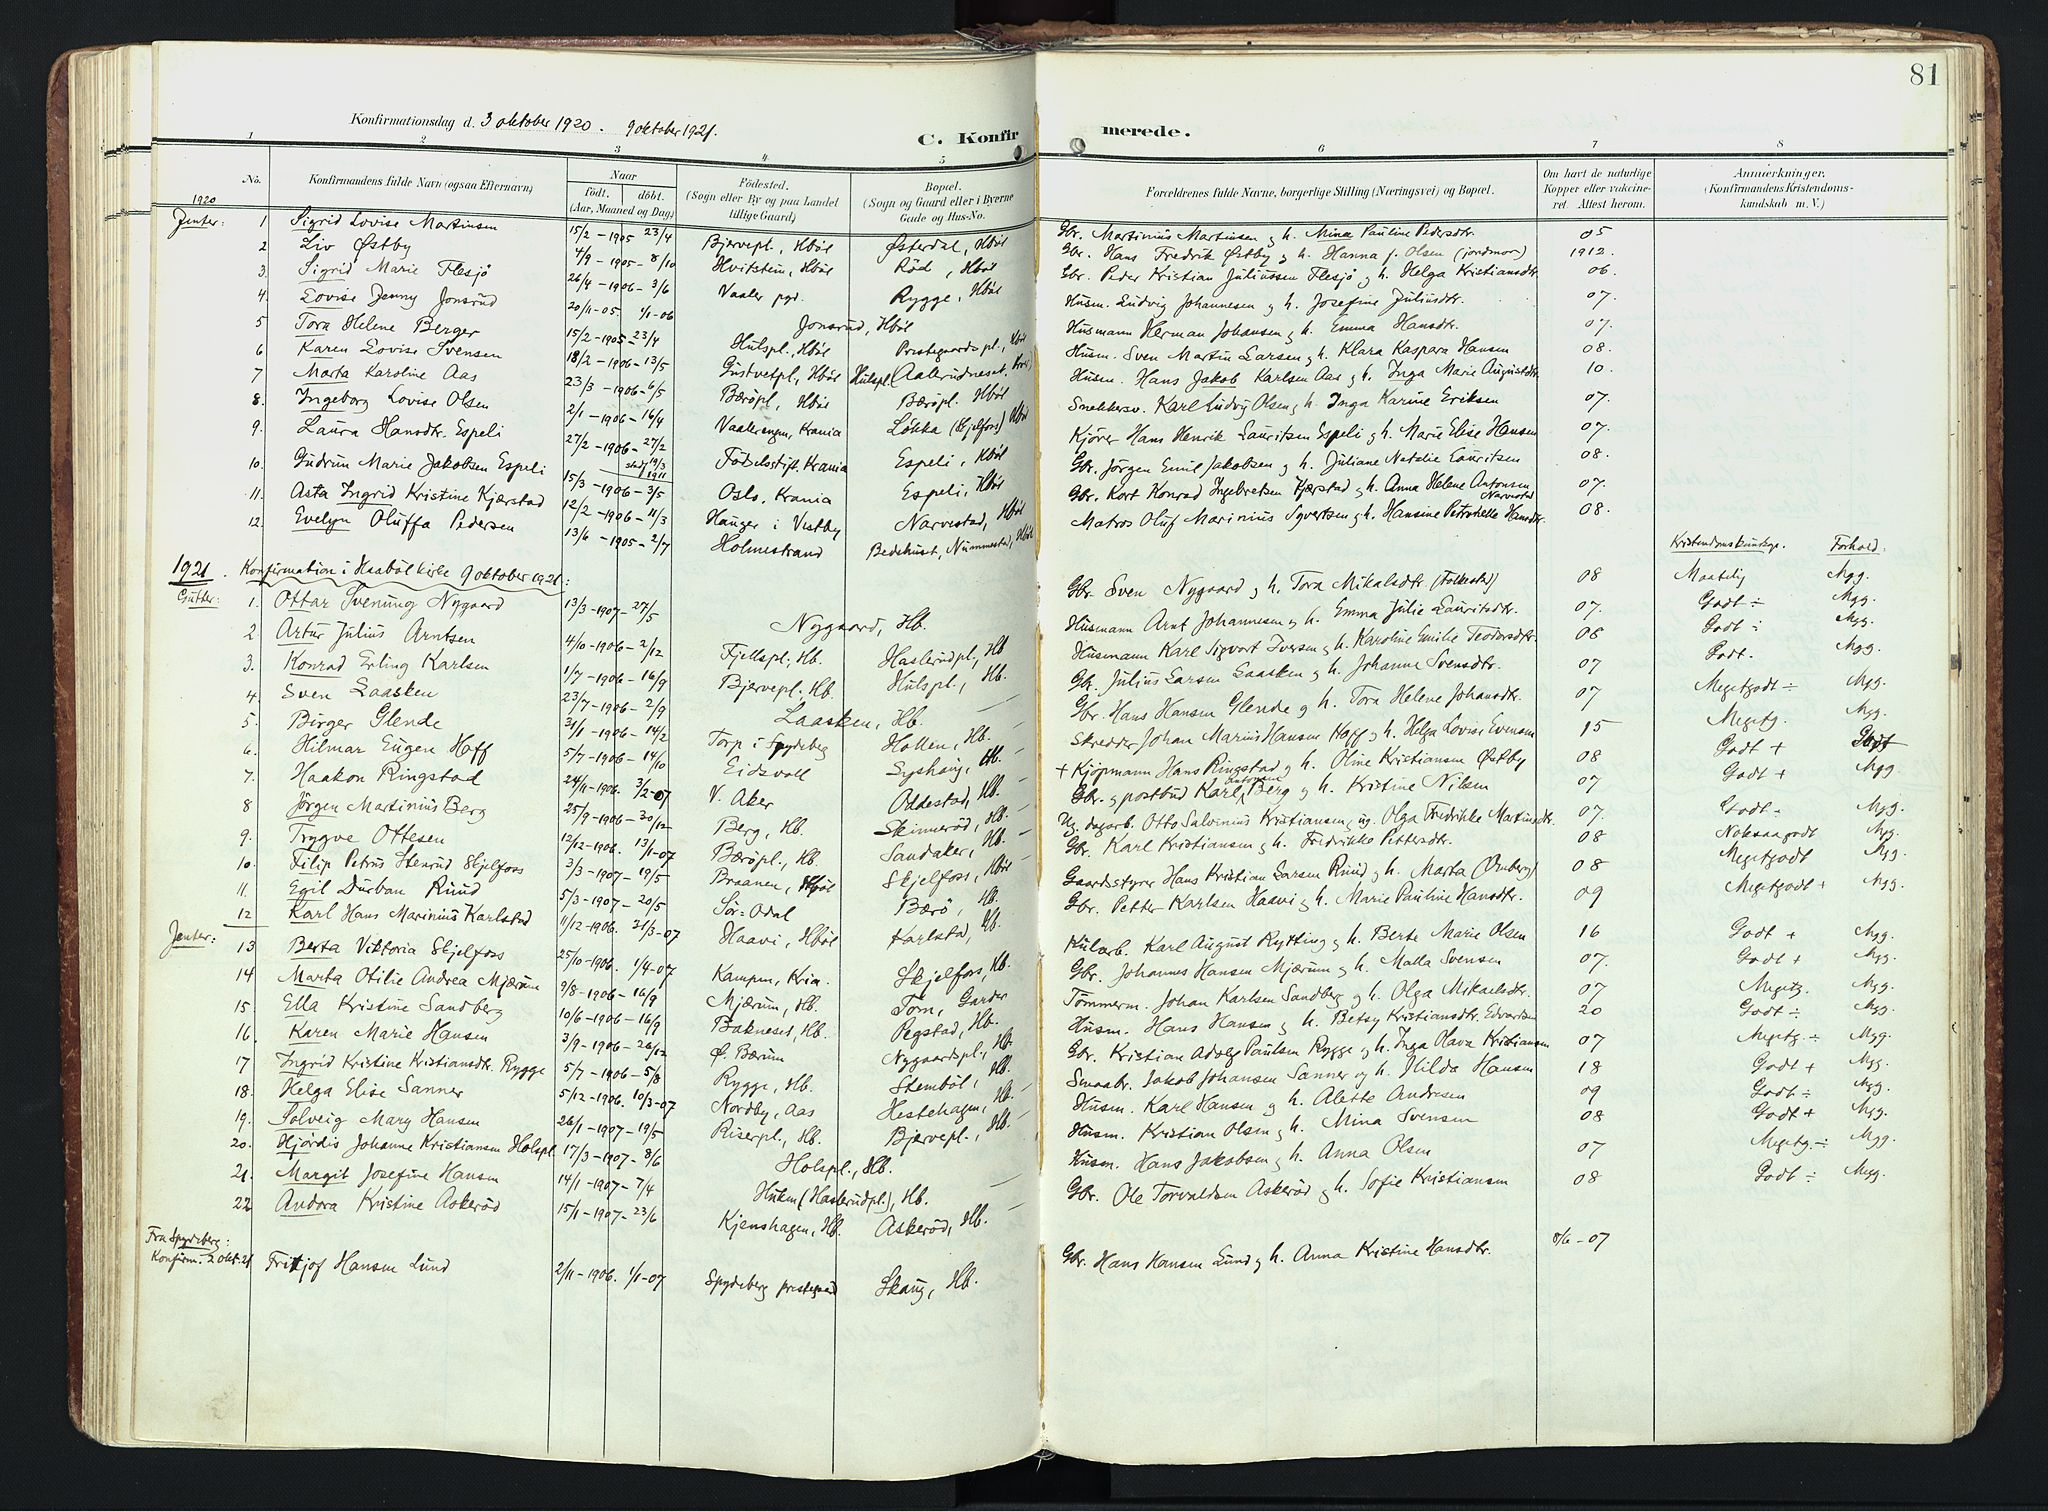 81
Konfirmationsdag d. 3 oktober 1920. 9 oktober 1921.
C. Konfirmerede.
1 2 3 4 5 6 7 8
No. Konfirmandens fulde Navn (ogsaa Efternavn) Naar født. døbt. (Aar, Maaned og Dag) Fødested. (Sogn eller By og paa Landet tillige Gaard) Bopæl. (Sogn og Gaard eller i Byerne Gade og Hus-No. Forældrenes fulde Navne, borgerlige Stilling (Næringsvei) og Bopæl. Om havt de naturlige Kopper eller vaccineret. Attest herom. Anmærkninger. (Konfirmandens Kristendomskundskab m. V.)
1920
Jenter: 1 Sigrid Lovise Martinsen 15/2-1905 23/4 Bjervepl., Hbøl Østerdal, Hbøl Gbr. Martinius Martinsen g h. Mina Pauline Pedersdtr. 05
2 Liv Østby 4/9-1905-8/10 Hvitstein, Hbøl Rød, Hbøl Gbr. Hans Fredrik Østby g h. Hanna f. Olsen (jordmor) 1912.
3. Sigrid Marie Flesjø 26/4-1906-3/6 Vaaler pgd. Rygge, Hbøl Gbr. Peder Kristian Juliussen Flesjø g h. Helga Kristiansdtr. 06
4. Lovise Jenny Jonsrud 20/11-05 1/1-06 Jonsrud, Hbøl Husm. Ludvig Johannesen g h. Josefine Juliusdtr. 07.
5 Tora Helene Berger 15/2-1905-23/4 Hulspl., Hbøl Prestegaardspl., Hbøl Husmann Herman Johansen g h. Emma Hansdtr. 07.
6 Karen Lovise Svensen 18/2-1906-13/5 Gustvetpl., Hbøl Hulspl. (Aalerudneset. Husm. Sven Martin Larsen g h. Klara Kaspara Hansen 08.
7 Marta Karoline Aas 23/3-1906-6/5 Bærøpl., Hbøl Bærøpl. Hbøl Husm. Hans Jakob Karlsen Aas g h. Inga Marie Augustdtr. 10.
8. Ingeborg Lovise Olsen 2/1-1906-16/4 Vaalerengen, Krania Løkka (Skjelfors) Hbøl Snekkersv. Karl Ludvig Olsen g h. Inga Karine Eriksen 07.
9. Laura Hansdtr. Espeli 27/2-1906-27/2 stadf. 19/3 1911 Fødselsstift. Krania Espeli, Hbøl Kjører Hans Henrik Lauritsen Espeli g h. Marie Elise Hansen 07.
10. Gudrun Marie Jakobsen Espeli 15/3-1906-3/5 Oslo, Krania Espeli, Hbøl Gbr. Jørgen Emil Jakobsen g h. Juliane Natalie Lauritsen 08.
11. Asta Ingrid Kristine Kjærstad 12/2-1906-11/3 Hauger i Vestby Narvestad, Hbøl Gbr. Kort Konrad Ingebretsen Kjærstad g h. Anna Helene Antonsen Narvestad 07.
12. Evelyn Oluffa Pedersen 13/6-1905-2/7 Holmestrand Bedehuset, Nummestad, Hbøl Matros Oluf Marinius Syvertsen g h. Hansine Petronelle Hansdtr. 08.
Kristendomskundskap. Forhold:
1921. Konfirmation i Haabøl kirke 9 oktober 1921:
Gutter: 1. Ottar Svenung Nygaard 13/3-1907-27/5 Nygaard, Hb. Gbr. Sven Nygaard g h. Tora Mikalsdtr. (Folkestad) 08 Maatelig Mgg.
2 Artur Julius Arntsen 4/10-1906-2/12 Fjellspl., Hb. Haslerudpl., Hb Husmann Arnt Johannesen g h. Emma Julie Lauritsdtr. 07. Godt ÷ Mgg.
3. Konrad Erling Karlsen 1/7-1906-16/9 Bjervepl. Hb. Hulspl., Hb. Husmann Karl Sigvart Iversen g h. Karoline Emilie Teodorsdtr. 06 Godt ÷ Mgg.
4 Sven Laasken 23/7-1906-2/9 Laasken, Hb. Gbr. Julius Larsen Laasken g h. Johanne Svensdtr. 07 Godt. Mgg.
5. Birger Glende 31/1-1906-14/2 Torp i Spydeberg Hollen, Hb. Gbr. Hans Hansen Glende g h. Tora Helene Johansdtr. 07 Megetgodt ÷ Mgg.
6. Hilmar Eugen Hoff 5/7-1906-14/10 Eidsvoll Syshaug, Hb. Skredder Johan Marius Hansen Hoff g h. Helga Lovise Evensen 15 Megetg. Mgg.
7. Haakon Ringstad 24/11-1906. 3/2-07 V. Aker Oddestad, Hb. + Kjøpmann Hans Ringstad g h. Oline Kristiansen Østby 08 Godt + Godt
8 Jørgen Martinius Berg 25/9-1906-30/12 Berg, Hb. Skinnerød, Hb. Gbr. g postbud Karl Antonsen Berg g h. Kristine Nilsen 07 Godt + Mgg.
9. Trygve Ottesen 12/12-1906. 13/1-07 Bærøpl., Hb. Sandaker, Hb. Ug. dagarb. Otto Salvinius Kristiansen, ug. Olga Fredrikke Martinsdtr. 07. Godt ÷ Mgg.
10. Filip Petrus Stenrud Skjelfoss 3/3-1907-19/5 Braanen, Hbøl Skjelfoss, Hbøl Gbr. Karl Kristiansen g h. Fredrikke Pettersdtr. 08 Noksaagodt Mgg.
11. Egil Durban Ruud 5/3-1907-20/5 Sør-Odal Bærø, Hb. Gaardsstyrer Hans Kristian Larsen Ruud g h. Marta (Onberg) 08 Megetgodt Mgg.
12 Karl Hans Marinius Karlstad 11/12-1906. 26/3-07 Haavi, Hbøl Karlstad, Hb. Gbr. Petter Karlsen Haavi g h. Marie Pauline Hansdtr. 09 Megetgodt + Mgg.
Jenter: 13 Berta Viktoria Skjelfoss 25/10-1906. 1/4-07 Kampen, Kria. Skjelfoss, Hb. Kularb. Karl August Rytting g h. Berte Marie Olsen 16 Godt + Mgg.
14 Marta Otilie Andrea Mjærum 9/8-1906-16/9 Mjærum, Hb. Tom, Garder Gbr. Johannes Hansen Mjærum g h. Malla Svensen 07. Godt + Mgg.
15. Ella Kristine Sandberg 10/6-1906-16/9 Bakneset, Hb. Pegstad, Hb. Tømmerm. Johan Karlsen Sandberg g h. Olga Mikaelsdtr. 07 Megetg. Mgg.
16. Karen Marie Hansen 3/9-1906-26/12 Ø. Bærum Nygaardspl., Hb. Husm. Hans Hansen g h. Betsy Kristiansdtr. Edvardsen 20 Godt ÷ Mgg.
17 Ingrid Kristine Kristiansdtr. Rygge 5/7-1906-5/8 Rygge, Hb. Stenbøl, Hb. Gbr. Kristian Adolf Paulsen Rygge g h. Inga Olava Kristiansen 07 Megetg. ÷ Mgg.
18. Helga Elise Sanner 5/12-1906. 10/3-07 Nordby, Aas Hestehagen, Hb. Smaabr. Jakob Johansen Sanner g h. Hilda Hansen 18 Godt + Mgg.
19. Solveig Mary Hansen 26/1-1907-19/5 Riserpl., Hb. Bjervepl., Hb. Husm. Karl Hansen g h. Alette Andresen 09 Godt ÷ Mgg.
20. Hjørdis Johanne Kristiansen Holspl. 17/3-1907-8/6 Holspl., Hb. Husm. Kristian Olsen g h. Mina Svensen 08 Godt + Mgg.
21. Margit Josefine Hansen 14/1-1907-7/4 Huken (Haslerudpl.), Hb. Husm. Hans Jakobsen g h. Anna Olsen 07 Megetg. ÷ Mgg.
22 Andora Kristine Askerød 15/1-1907-23/6 Kjenshagen, Hb. Askerød, Hb. Gbr. Ole Torvaldsen Askerød g h. Sofie Kristiansen 08 Godt ÷ Mgg.
Fra Spydeberg:
Konfirm. 2 okt. 21 Fritjof Hansen Lund 2/11-1906. 1/1-07 Spydeberg prestegaard Skaug, Hb. Gbr. Hans Hansen Lund g h. Anna Kristine Hansdtr. 8/6-07